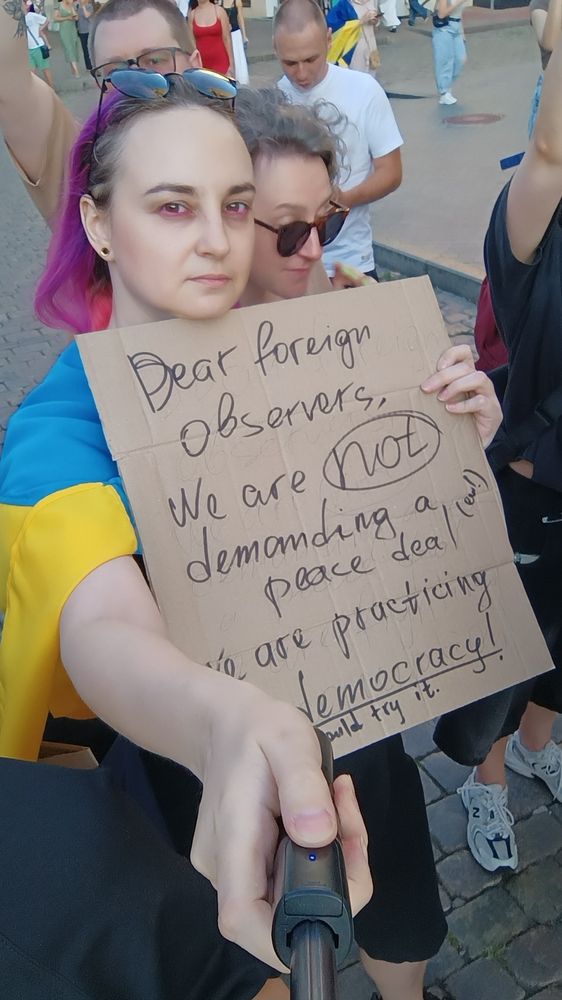 Dear foreign
observers,
We are not
demanding a
peace deal (ew!)
We are practicing
democracy!
try it.